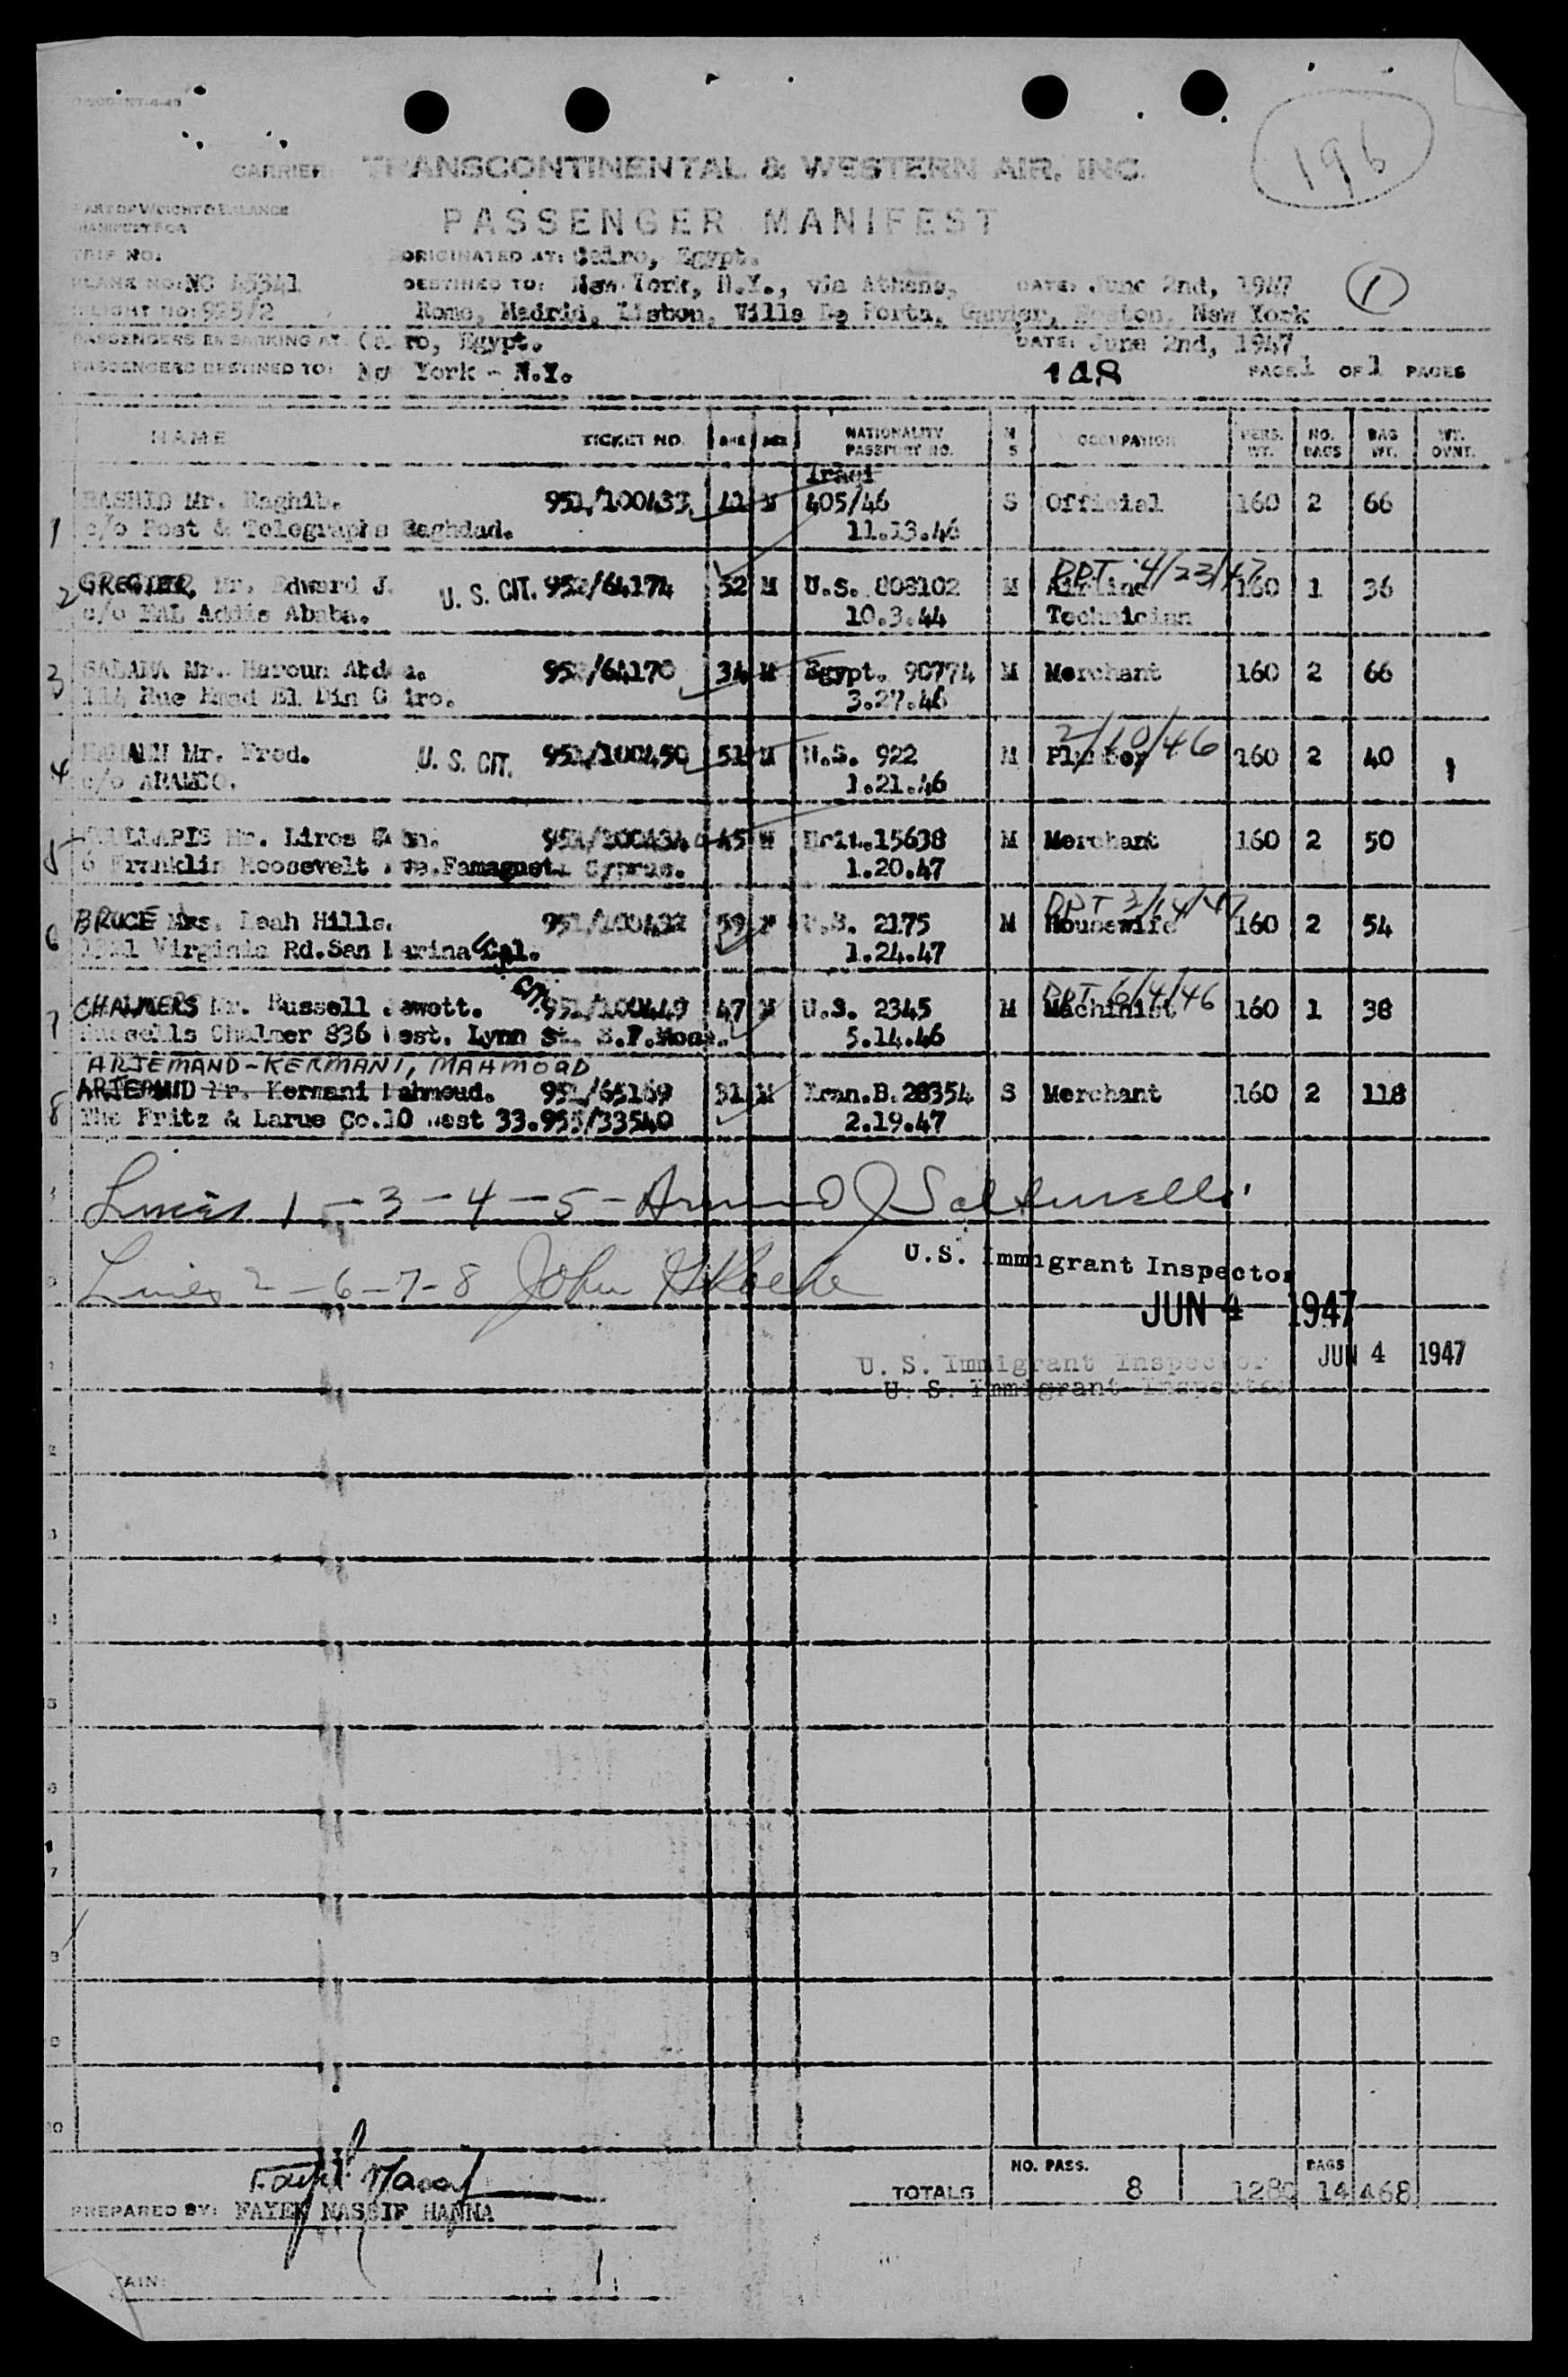 196
CARRIER: TRANSCONTINENTAL & WESTERN AIR, INC.
PART OF WEIGHT & BALANCE
MANIFEST FOR
PASSENGER MANIFEST
TRIP NO: ORIGINATED AT: Cairo, Egypt.
PLANE NO: NC 45341 DESTINED TO: New York, N.Y., via Athens, DATE: June 2nd, 1947 1
FLIGHT NO: 925/2 Rome, Madrid, Lisbon, Villa De Porta, Gander, Boston, New York
PASSENGERS EMBARKING AT: Cairo, Egypt. DATE: June 2nd, 1947
PASSENGERS DESTINED TO: New York - N.Y. 148 PAGE 1 OF 1 PAGES
NAME TICKET NO. AGE SEX NATIONALITY PASSPORT NO. M S OCCUPATION PERS. WT. NO. BAGS BAG WT. WT. OVNT.
Iraqi
1 RASHID Mr. Raghib. 951/100433 41 M 405/46 S Official 160 2 66
c/o Post & Telegraphs Baghdad. 11.13.46
DPT 4/23/47
2 Mr. Edward J. U. S. CIT. 952/64174 32 M U.S. 808102 M Airline 160 1 36
c/o EAL Addis Ababa. 10.3.44 Technician
3 SALAMA Mr. Haroun Abdou. 952/64170 34 M Egypt. 90774 M Merchant 160 2 66
114 Rue Emad El Din Cairo. 3.27.46
2/10/46
4 Mr. Fred. U. S. CIT. 951/100450 51 M U.S. 922 M Plumber 160 2 40
c/o ARAMCO. 1.21.46
5 Mr. Liros 951/100434 45 M Brit.15638 M Merchant 160 2 50
6 Franklin Roosevelt Ave.Famagusta Cyprus. 1.20.47
DPT 3/14/47
6 BRUCE Mrs. Leah Hills. 951/100432 59 U.S. 2175 M Housewife 160 2 54
Virginia Rd.San Marina Cal. 1.24.47
U.S. CIT.
DPT 6/4/46
7 CHALMERS Mr. Russell Jewett. 951/100449 47 M U.S. 2345 M Machinist 160 1 38
Russells Chalmer 836 West. Lynn St. 5.14.46
ARJEMAND-KERMANI, MAHMOOD
8 Mr. Kermani Mahmoud. 951/65169 31 M Iran.B.28354 S Merchant 160 2 118
The Fritz & Larue Co.10 West 33.955/33540 2.19.47
Lines 1 - 3 - 4 - 5 -
U.S. Immigrant Inspector
Lines 2 - 6 - 7 - 8 John
JUN 4 1947
U. S. Immigrant Inspector JUN 4 1947
U. S. Immigrant Inspector
NO. PASS. BAGS
TOTALS 8 1280 14 468
PREPARED BY: FAYEK NASSIF HANNA